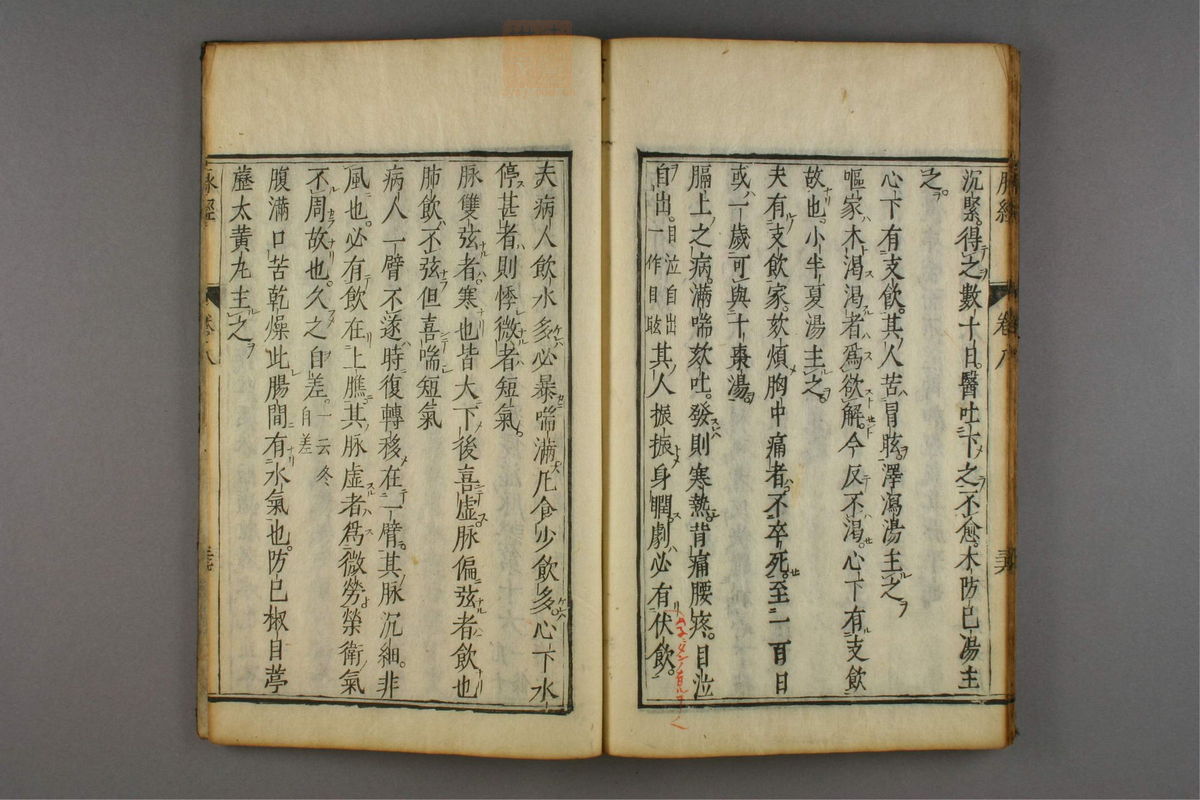 脉經
卷八
沉緊得之數十日醫吐下之不愈木防已湯主
之
心下有支飲其人苦冒眩澤瀉湯主之
嘔家木渴渴者爲欲解今反不渴心下有支飲
故也小半夏湯主之
夫有支飲家欬煩胸中痛者不卒死至一百日
或一歲可與十棗湯
膈上之病滿喘欬吐發則寒熱背痛腰疼目泣
自出目泣自出一作目眩其人振振身瞤劇必有伏飲
夫病人飲水多必暴喘滿凡食少飲多心下水
停甚者則悸微者短氣
脉雙弦者寒也皆大下後喜虚脉偏弦者飲也
肺飲不弦但喜喘短氣
病人一臂不遂時復轉移在一臂其脉沉細非
風也必有飲在上膲其脉虚者爲微勞榮衛氣
不周故也久之自差一云冬自差
腹滿口苦乾燥此腸間有水氣也防已椒目葶
藶太黄丸主之
脉經
卷八